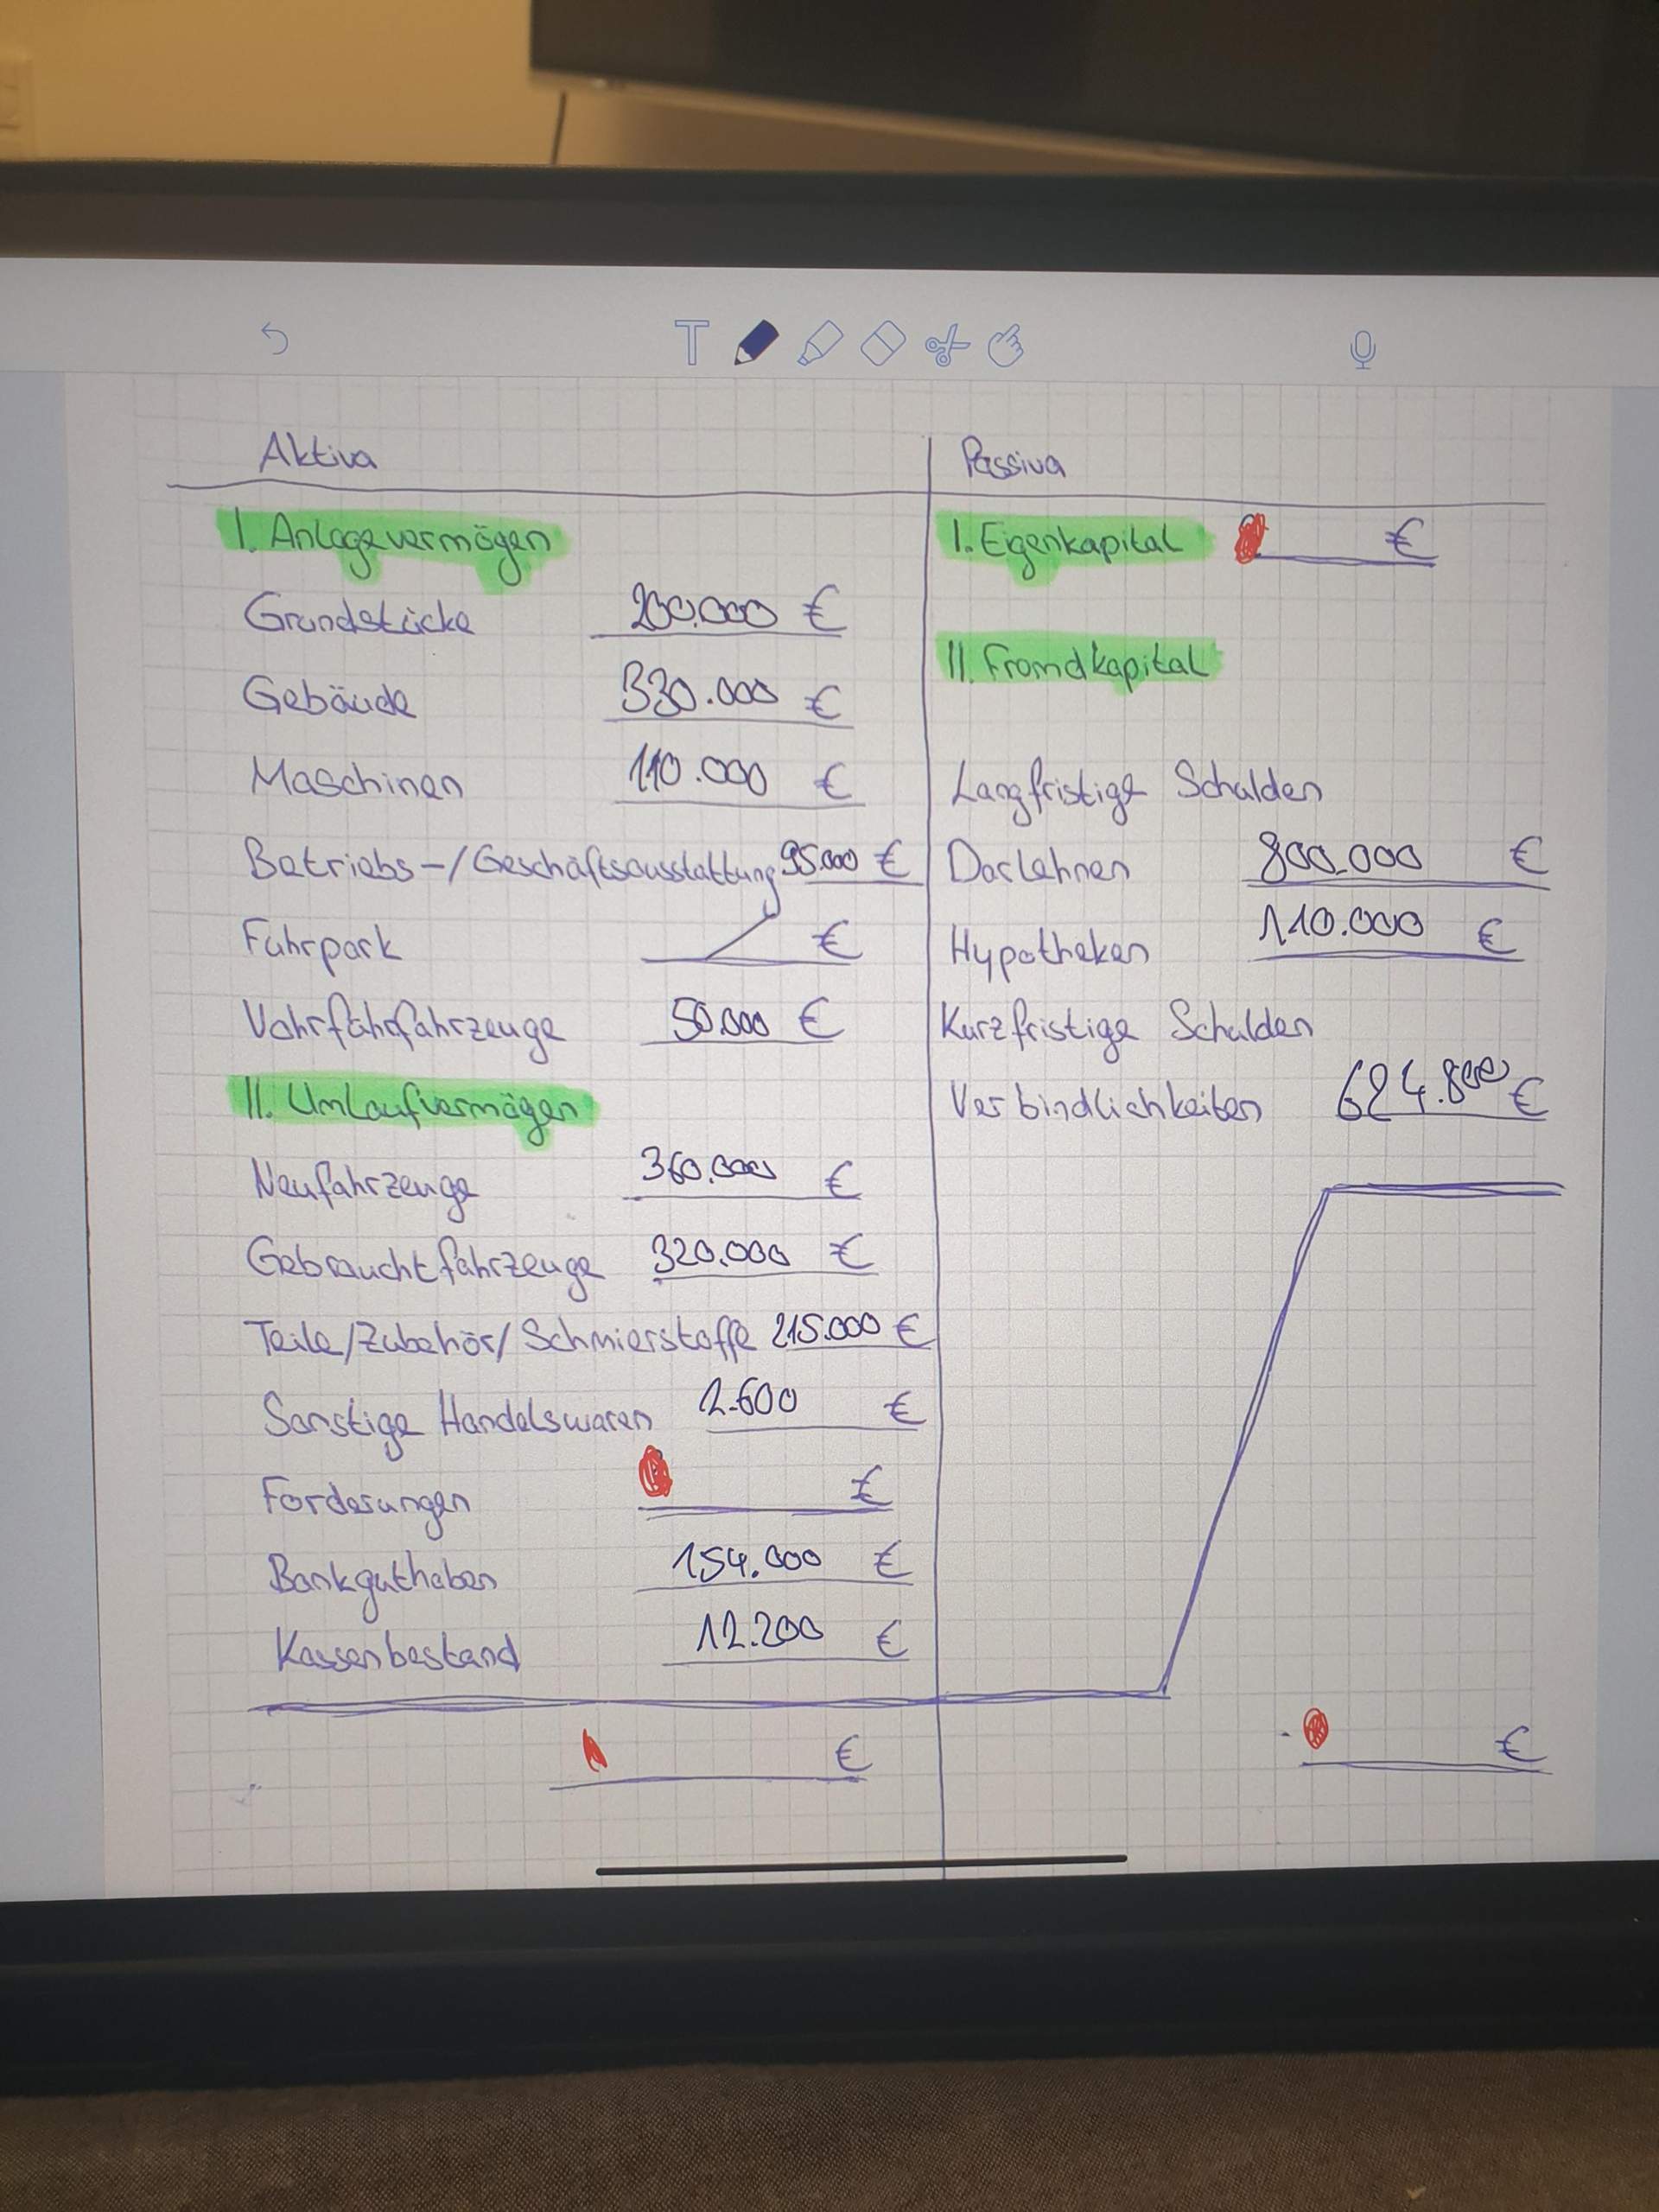 T
Aktiva
I. Anlagevermögen
Grundstücke 200.000 €
Gebäude 330.000 €
Maschinen 110.000 €
Betriebs-/Geschäftsausstattung 95.000 €
Fuhrpark €
Vohrführfahrzeuge 50.000 €
II. Umlaufvermögen
Neufahrzeuge 360.000 €
Gebrauchtfahrzeuge 320.000 €
Teile/Zubehör/Schmierstoffe 215.000 €
Sonstige Handelswaren 2.600 €
Forderungen €
Bankguthaben 154.000 €
Kassenbestand 12.200 €
€
Passiva
I. Eigenkapital €
II. Fremdkapital
Langfristige Schulden
Darlehnen 800.000 €
Hypotheken 110.000 €
Kurzfristige Schulden
Verbindlichkeiten 624.800 €
€